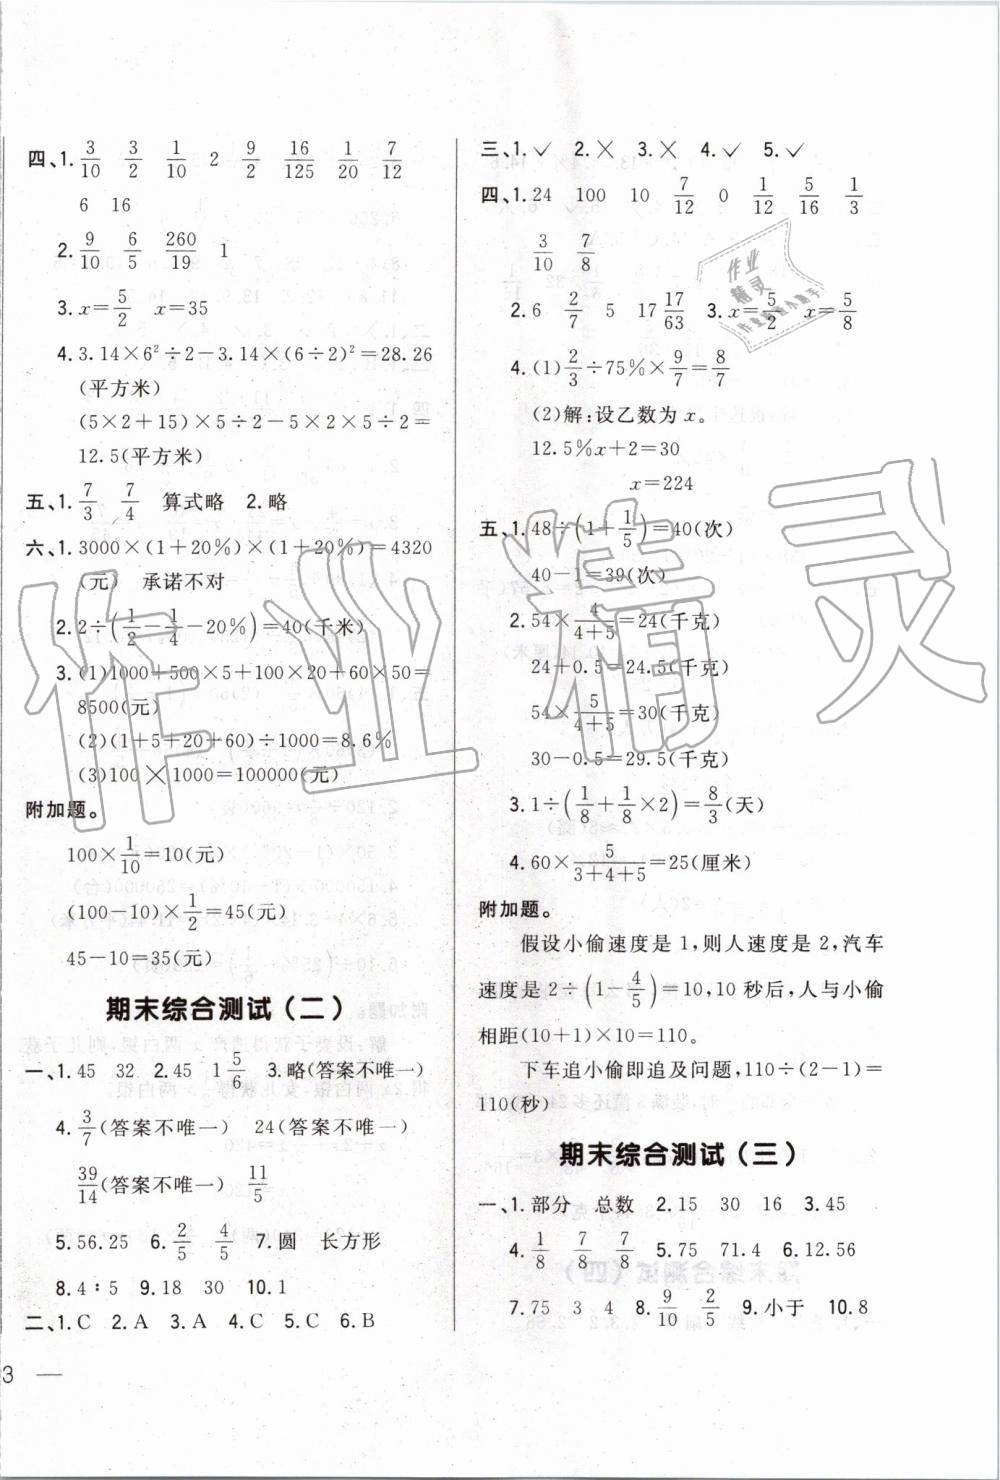 四、1. 3/10 3/2 1/10 2 9/2 16/125 1/20 7/12
6 16
2. 9/10 6/5 260/19 1
3. x=5/2 x=35
4. 3.14×6²÷2-3.14×(6÷2)²=28.26
(平方米)
(5×2+15)×5÷2-5×2×5÷2=
12.5(平方米)
五、1. 7/3 7/4 算式略 2.略
六、1. 3000×(1+20%)×(1+20%)=4320
(元) 承诺不对
2. 2÷(1/2-1/4-20%)=40(千米)
3. (1)1000+500×5+100×20+60×50=
8500(元)
(2)(1+5+20+60)÷1000=8.6%
(3)100×1000=100000(元)
附加题。
100×1/10=10(元)
(100-10)×1/2=45(元)
45-10=35(元)
期末综合测试(二)
一、1. 45 32 2. 45 1 5/6 3.略(答案不唯一)
4. 3/7(答案不唯一) 24(答案不唯一)
39/14(答案不唯一) 11/5
5. 56.25 6. 2/5 4/5 7.圆 长方形
8. 4∶5 9. 18 30 10. 1
二、1. C 2. A 3. A 4. C 5. C 6. B
3 —
三、1. ✓ 2. × 3. × 4. ✓ 5. ✓
四、1. 24 100 10 7/12 0 1/12 5/16 1/3
3/10 7/8
2. 6 2/7 5 17 17/63 3. x=5/2 x=5/8
4. (1)2/3÷75%×9/7=8/7
(2)解:设乙数为 x。
12.5%x+2=30
x=224
五、1. 48÷(1+1/5)=40(次)
40-1=39(次)
2. 54×4/(4+5)=24(千克)
24+0.5=24.5(千克)
54×5/(4+5)=30(千克)
30-0.5=29.5(千克)
3. 1÷(1/8+1/8×2)=8/3(天)
4. 60×5/(3+4+5)=25(厘米)
附加题。
假设小偷速度是 1,则人速度是 2,汽车
速度是 2÷(1-4/5)=10,10 秒后,人与小偷
相距(10+1)×10=110。
下车追小偷即追及问题,110÷(2-1)=
110(秒)
期末综合测试(三)
一、1.部分 总数 2. 15 30 16 3. 45
4. 1/8 7/8 7/8 5. 75 71.4 6. 12.56
7. 75 3 4 8. 9/10 2/5 9.小于 10. 8
作业精灵
作业
精灵